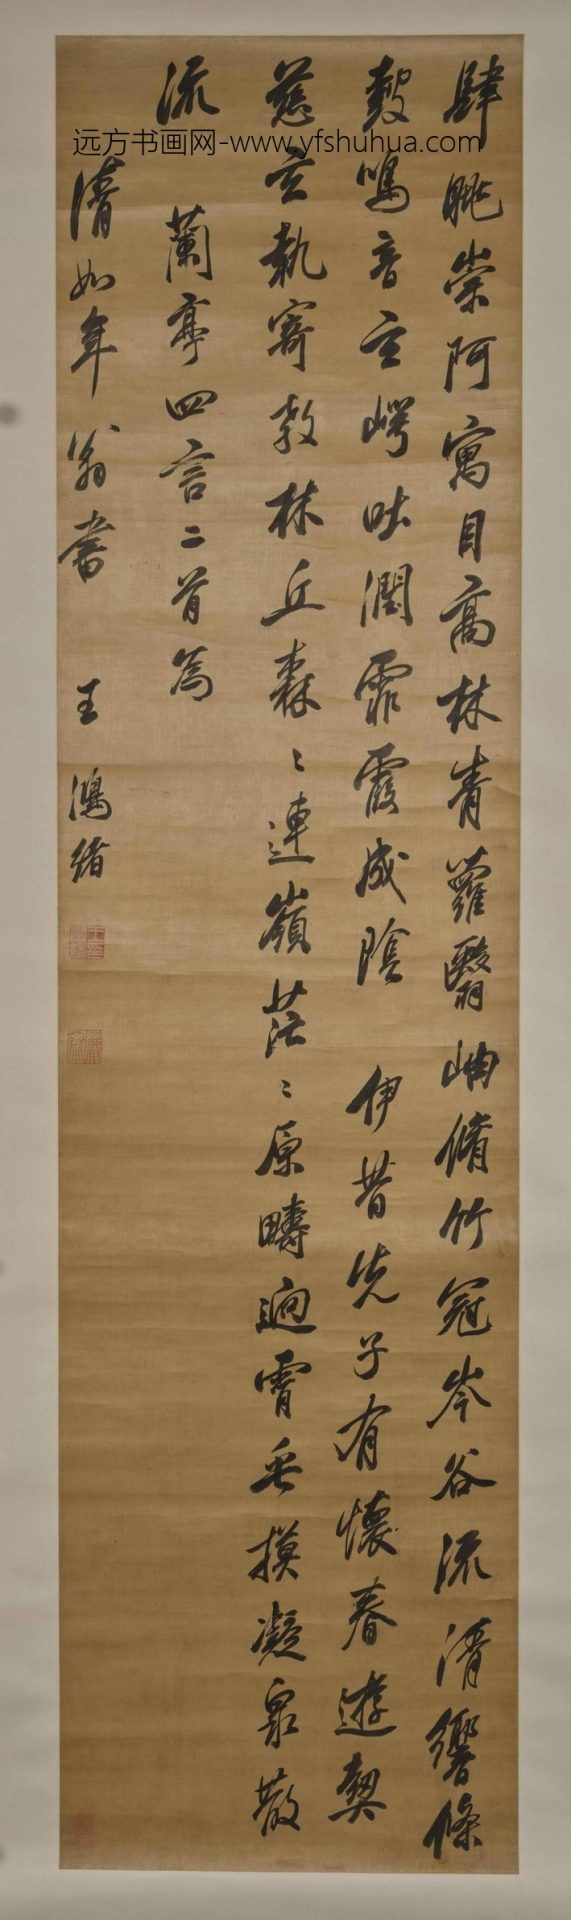 肆眺崇阿寓目高林青蘿翳岫脩竹冠岑谷流清響條
鼓鳴音玄崿吐潤霏霧成陰 伊昔先子有懷春遊契
茲言執寄敖林丘森〻連嶺茫〻原疇迥霄垂
凝泉散
流
蘭亭四言二首為
清如年翁書 王鴻緒
远方书画网-www.yfshuhua.com